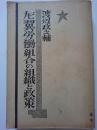 渡邊政之輔
左翼勞働組合の組織と政策